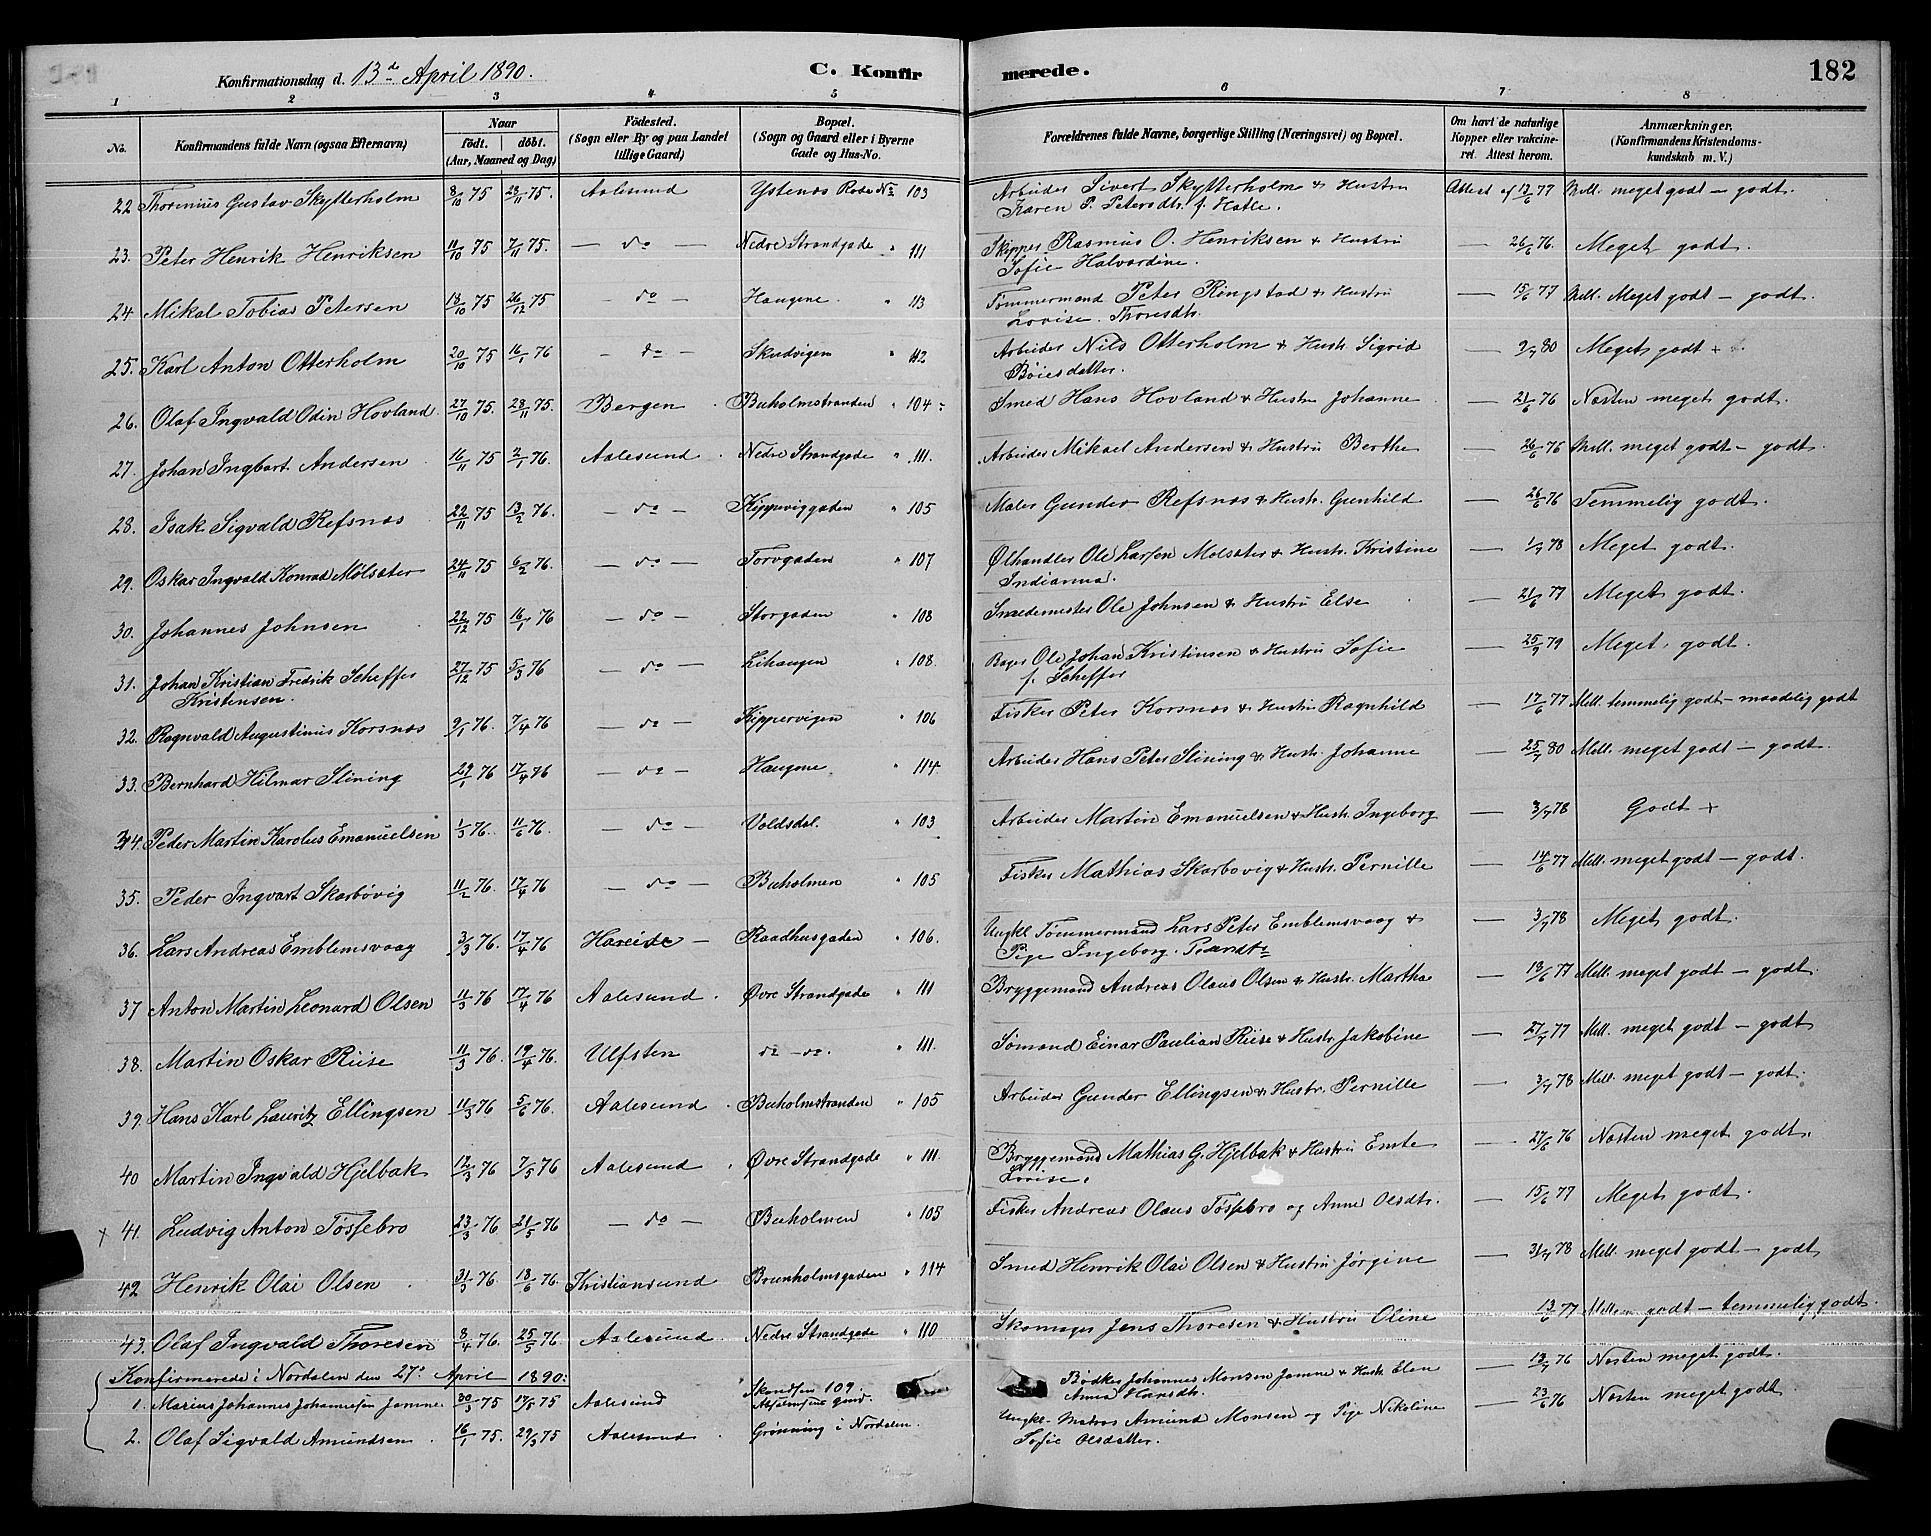 Konfirmationsdag d. 13de April 1890.
C. Konfir
merede.
182
1 2 3 4 5 6 7 8
No.
Konfirmandens fulde Navn (ogsaa Efternavn)
Naar
født. døbt.
(Aar, Maaned og Dag)
Fødested.
(Sogn eller By og paa Landet
tillige Gaard)
Bopæl.
(Sogn og Gaard eller i Byerne
Gade og Hus-No.
Forældrenes fulde Navne, borgerlige Stilling (Næringsvei) og Bopæl.
Om havt de naturlige
Kopper eller vakcine-
ret. Attest herom.
Anmærkninger.
(Konfirmandens Kristendoms-
kundskab m. V.)
22 Thorenius Gustav Skytterholm 8/10 75 28/11 75. Aalesund Ystenæs Rode No 103 Arbeider Sivert Skytterholm & Hustru Attest af 12/6 77 Mell. meget godt – godt.
Karen P. Petersdtr. f. Hatle.
23. Peter Henrik Henriksen 11/10 75 7/11 75. — do — Nedre Strandgade " 111 Skipper Rasmus O. Henriksen & Hustru — 26/6 76. Meget godt.
Sofie Halvardine.
24 Mikal Tobias Petersen 18/10 75 26/12 75 — do — Haugene. " 113 Tømmermand Peter Ringstad & Hustru — 15/6 77 Mell. Meget godt – godt.
Lovise Thoresdtr.
25. Karl Anton Otterholm 20/10 75 16/1 76 — do — Skudvigen " 112 Arbeider Nils Otterholm & Hustr. Sigrid — 9/7 80 Meget godt +
Bøiesdatter.
26. Olaf Ingvald Odin Hovland. 27/10 75. 28/11 75. Bergen Buholmstranden " 104 Smed Hans Hovland & Hustru Johanne — 21/6 76 Næsten meget godt.
27. Johan Ingbart Andersen 16/11 75 2/1 76. Aalesund Nedre Strandgade " 111. Arbeider Mikael Andersen & Hustru Berthe — 26/6 76 Mell. meget godt – godt.
28. Isak Sigvald Refsnæs 22/11 75 13/2 76. — do — Kippeviggaden " 105 Maler Gunder Refsnæs & Hustr. Gunhild — 26/6 76 Temmelig godt.
29. Oskar Ingvald Konrad Mølsæter 24/11 75 6/2 76. — do — Torvgaden " 107 Ølhandler Ole Larsen Molsæter & Hustr. Kristine — 1/7 78 Meget godt.
Indianna.
30. Johannes Johnsen 22/12 75 16/1 76 — do — Storgaden " 108 Smedemester Ole Johnsen & Hustru Else — 21/6 77 Meget godt.
31. Johan Kristian Fredrik Scheffer 27/12 75 5/3 76 — do — Lihaugen " 108. Bager Ole Johan Kristinsen & Hustru Sofie — 25/9 79 Meget godt.
Kristensen. f. Scheffer
32. Ragnvald Augustinius Korsnæs 9/1 76. 7/4 76 — do — Kippervigen " 106 Fisker Peter Korsnæs & Hustru Ragnhild — 17/6 77 Mell. temmelig godt – maadelig godt
33. Bernhard Hilmar Slining 29/1 76 17/4 76 — do — Haugene " 114. Arbeider Hans Peter Slining & Hustr. Johanne — 25/7 80 Mell. meget godt – godt.
34. Peder Martin Karolus Emanuelsen 1/3 76. 11/6 76. — do — Voldsdal. " 103 Arbeider Martin Emanuelsen & Hustr. Ingeborg — 3/7 78 Godt +
35. Peder Ingvart Skarbøvig 11/2 76. 17/4 76 — do — Buholmen " 105 Fisker Mathias Skarbøvig & Hustr. Pernille — 14/6 77 Mell. meget godt – godt.
36. Lars Andreas Emblemsvaag 3/3 76. 17/4 76 Hareide — Raadhusgaden " 106. Ungkl Tømmermand Lars Peter Emblemsvaag & — 3/7 78 Meget godt.
Pige Ingeborg
37 Anton Martin Leonard Olsen 11/3 76 17/4 76 Aalesund. Øvre Strandgade " 111 Bryggemand Andreas Olaus Olsen & Hustr. Martha — 18/6 77 Mell. meget godt – godt.
38. Martin Oskar Riise 11/3 76. 19/4 76. Ulfsten do – do. " 111. Sømand Einar Paulian Riise & Hustr. Jakobine — 27/7 77 Mell. meget godt – godt
39. Hans Karl Lauritz Ellingsen 11/3 76 5/6 76. Aalesund Buholmstranden " 105 Arbeider Gunder Ellingsen & Hustr. Pernille — 3/7 78 Mell. meget godt – godt.
40 Martin Ingvald Hjelbak 12/3 76 7/5 76 Aalesund Øvre Strandgade " 111. Bryggemand Mathias G. Hjelbak & Hustru Emte — 27/6 76 Næsten meget godt.
Lovise.
x 41. Ludvig Anton Tøssebro 23/3 76 21/5 76 — do — Buholmen " 105 Fisker Andreas Olaus Tøssebro og Anne Olsdtr. — 15/6 77 Meget godt.
42 Henrik Olai Olsen 31/3 76. 18/6 76. Kristiansund Brunholmsgaden " 114 Smed Henrik Olai Olsen & Hustru Jørgine — 31/7 78 Mell. meget godt – godt
43. Olaf Ingvald Thoresen 8/4 76. 25/5 76. Aalesund. Nedre Strandgade " 110 Skomager Jens Thoresen & Hustru Oline 13/6 77 Mellem godt – temmelig godt.
Konfirmerede i Nordalen den 27de April 1890:
1. Marius Johannes Johannessen Jamne. 30/3 75 17/5 75 Aalesund 109 Bødker Johannes Monsen Jamne & Hustr. Elen — 18/7 76 Næsten meget godt.
Anna Hansdtr.
2. Olaf Sigvald Amundsen 16/1 75. 29/3 75 Aalesund Grønning i Nordalen. Ungkl. Matros Amund Monsen og Pige Nikoline — 23/6 76 Næsten meget godt.
Sofie Olsdatter.